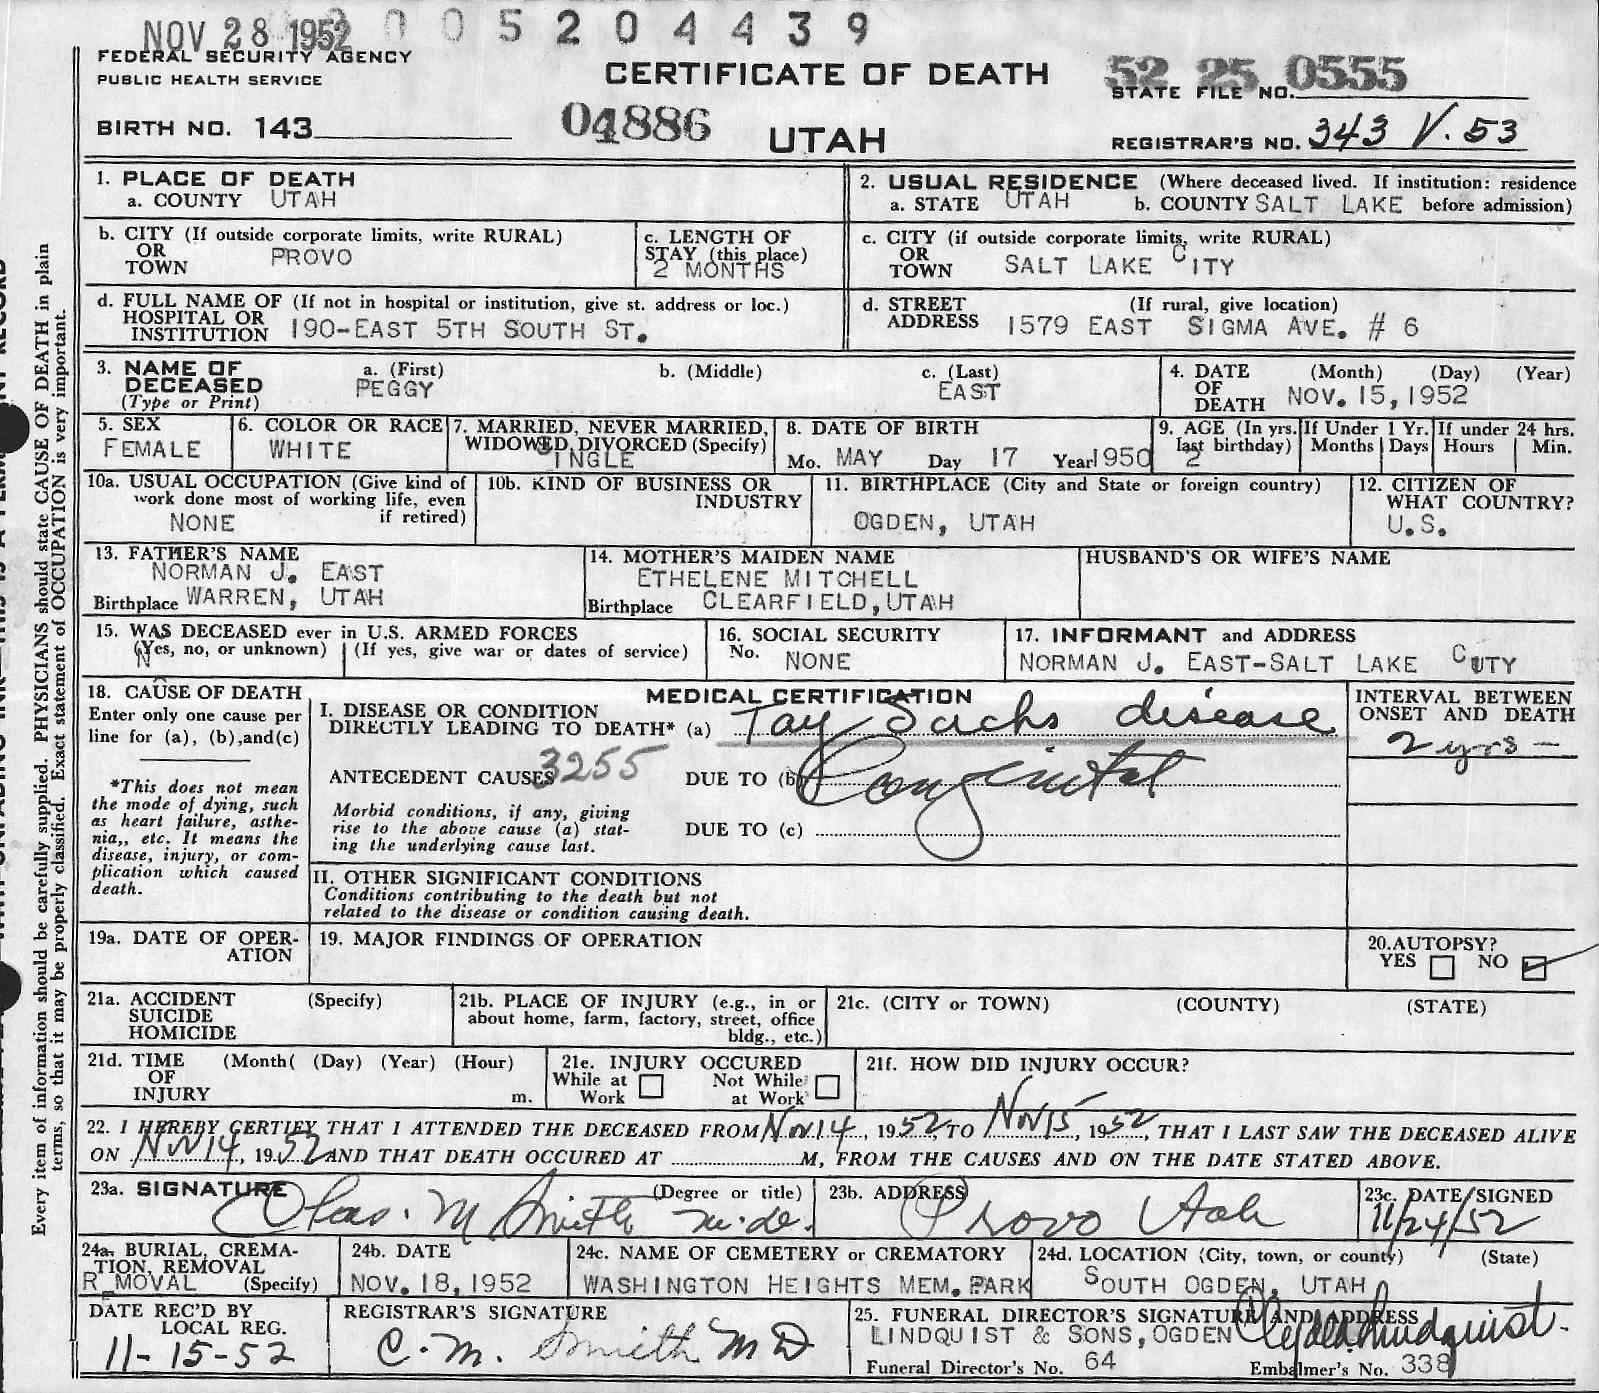 NOV 28 1952 0 0 5 2 0 4 4 3 9
FEDERAL SECURITY AGENCY
PUBLIC HEALTH SERVICE
CERTIFICATE OF DEATH
52 25 0555
STATE FILE NO.
BIRTH NO. 143
04886
UTAH
REGISTRAR'S NO. 343 V. 53
1. PLACE OF DEATH
a. COUNTY UTAH
2. USUAL RESIDENCE (Where deceased lived. If institution: residence
a. STATE UTAH b. COUNTY SALT LAKE before admission)
b. CITY (If outside corporate limits, write RURAL)
OR
TOWN PROVO
c. LENGTH OF
STAY (this place)
2 MONTHS
c. CITY (if outside corporate limits, write RURAL)
OR
TOWN SALT LAKE CITY
d. FULL NAME OF (If not in hospital or institution, give st. address or loc.)
HOSPITAL OR
INSTITUTION 190-EAST 5TH SOUTH ST.
d. STREET (If rural, give location)
ADDRESS 1579 EAST SIGMA AVE. # 6
3. NAME OF
DECEASED
(Type or Print)
a. (First) b. (Middle) c. (Last)
PEGGY EAST
4. DATE (Month) (Day) (Year)
OF
DEATH NOV. 15, 1952
5. SEX
FEMALE
6. COLOR OR RACE
WHITE
7. MARRIED, NEVER MARRIED,
WIDOWED, DIVORCED (Specify)
SINGLE
8. DATE OF BIRTH
Mo. MAY Day 17 Year 1950
9. AGE (In yrs.
last birthday)
2
If Under 1 Yr.
Months Days
If under 24 hrs.
Hours Min.
10a. USUAL OCCUPATION (Give kind of
work done most of working life, even
if retired)
NONE
10b. KIND OF BUSINESS OR
INDUSTRY
11. BIRTHPLACE (City and State or foreign country)
OGDEN, UTAH
12. CITIZEN OF
WHAT COUNTRY?
U.S.
13. FATHER'S NAME
NORMAN J. EAST
Birthplace WARREN, UTAH
14. MOTHER'S MAIDEN NAME
ETHELENE MITCHELL
Birthplace CLEARFIELD, UTAH
HUSBAND'S OR WIFE'S NAME
15. WAS DECEASED ever in U.S. ARMED FORCES
(Yes, no, or unknown) (If yes, give war or dates of service)
16. SOCIAL SECURITY
No. NONE
17. INFORMANT and ADDRESS
NORMAN J. EAST-SALT LAKE CUTY
18. CAUSE OF DEATH
Enter only one cause per
line for (a), (b), and (c)
*This does not mean
the mode of dying, such
as heart failure, asthe-
nia,, etc. It means the
disease, injury, or com-
plication which caused
death.
MEDICAL CERTIFICATION
I. DISEASE OR CONDITION
DIRECTLY LEADING TO DEATH* (a) Tay Sachs disease
ANTECEDENT CAUSES 3255 DUE TO (b) Congenital
Morbid conditions, if any, giving
rise to the above cause (a) stat-
ing the underlying cause last.
DUE TO (c)
INTERVAL BETWEEN
ONSET AND DEATH
2 yrs -
II. OTHER SIGNIFICANT CONDITIONS
Conditions contributing to the death but not
related to the disease or condition causing death.
19a. DATE OF OPER-
ATION
19. MAJOR FINDINGS OF OPERATION
20. AUTOPSY?
YES NO
21a. ACCIDENT (Specify)
SUICIDE
HOMICIDE
21b. PLACE OF INJURY (e.g., in or
about home, farm, factory, street, office
bldg., etc.)
21c. (CITY or TOWN) (COUNTY) (STATE)
21d. TIME (Month( (Day) (Year) (Hour)
OF
INJURY m.
21e. INJURY OCCURED
While at Work Not While at Work
21f. HOW DID INJURY OCCUR?
22. I HEREBY CERTIFY THAT I ATTENDED THE DECEASED FROM Nov 14, 1952, TO Nov 15, 1952, THAT I LAST SAW THE DECEASED ALIVE
ON Nov 14, 1952 AND THAT DEATH OCCURED AT M, FROM THE CAUSES AND ON THE DATE STATED ABOVE.
23a. SIGNATURE (Degree or title)
Chas. M Smith M.D.
23b. ADDRESS
Provo Utah
23c. DATE SIGNED
11/24/52
24a. BURIAL, CREMA-
TION, REMOVAL
R MOVAL (Specify)
24b. DATE
NOV. 18, 1952
24c. NAME OF CEMETERY or CREMATORY
WASHINGTON HEIGHTS MEM. PARK
24d. LOCATION (City, town, or county) (State)
SOUTH OGDEN, UTAH
DATE REC'D BY
LOCAL REG.
11-15-52
REGISTRAR'S SIGNATURE
C. M. Smith MD
25. FUNERAL DIRECTOR'S SIGNATURE AND ADDRESS
LINDQUIST & SONS, OGDEN Lindquist.
Funeral Director's No. 64 Embalmer's No. 338
Every item of information should be carefully supplied. PHYSICIANS should state CAUSE OF DEATH in plain
terms, so that it may be properly classified. Exact statement of OCCUPATION is very important.